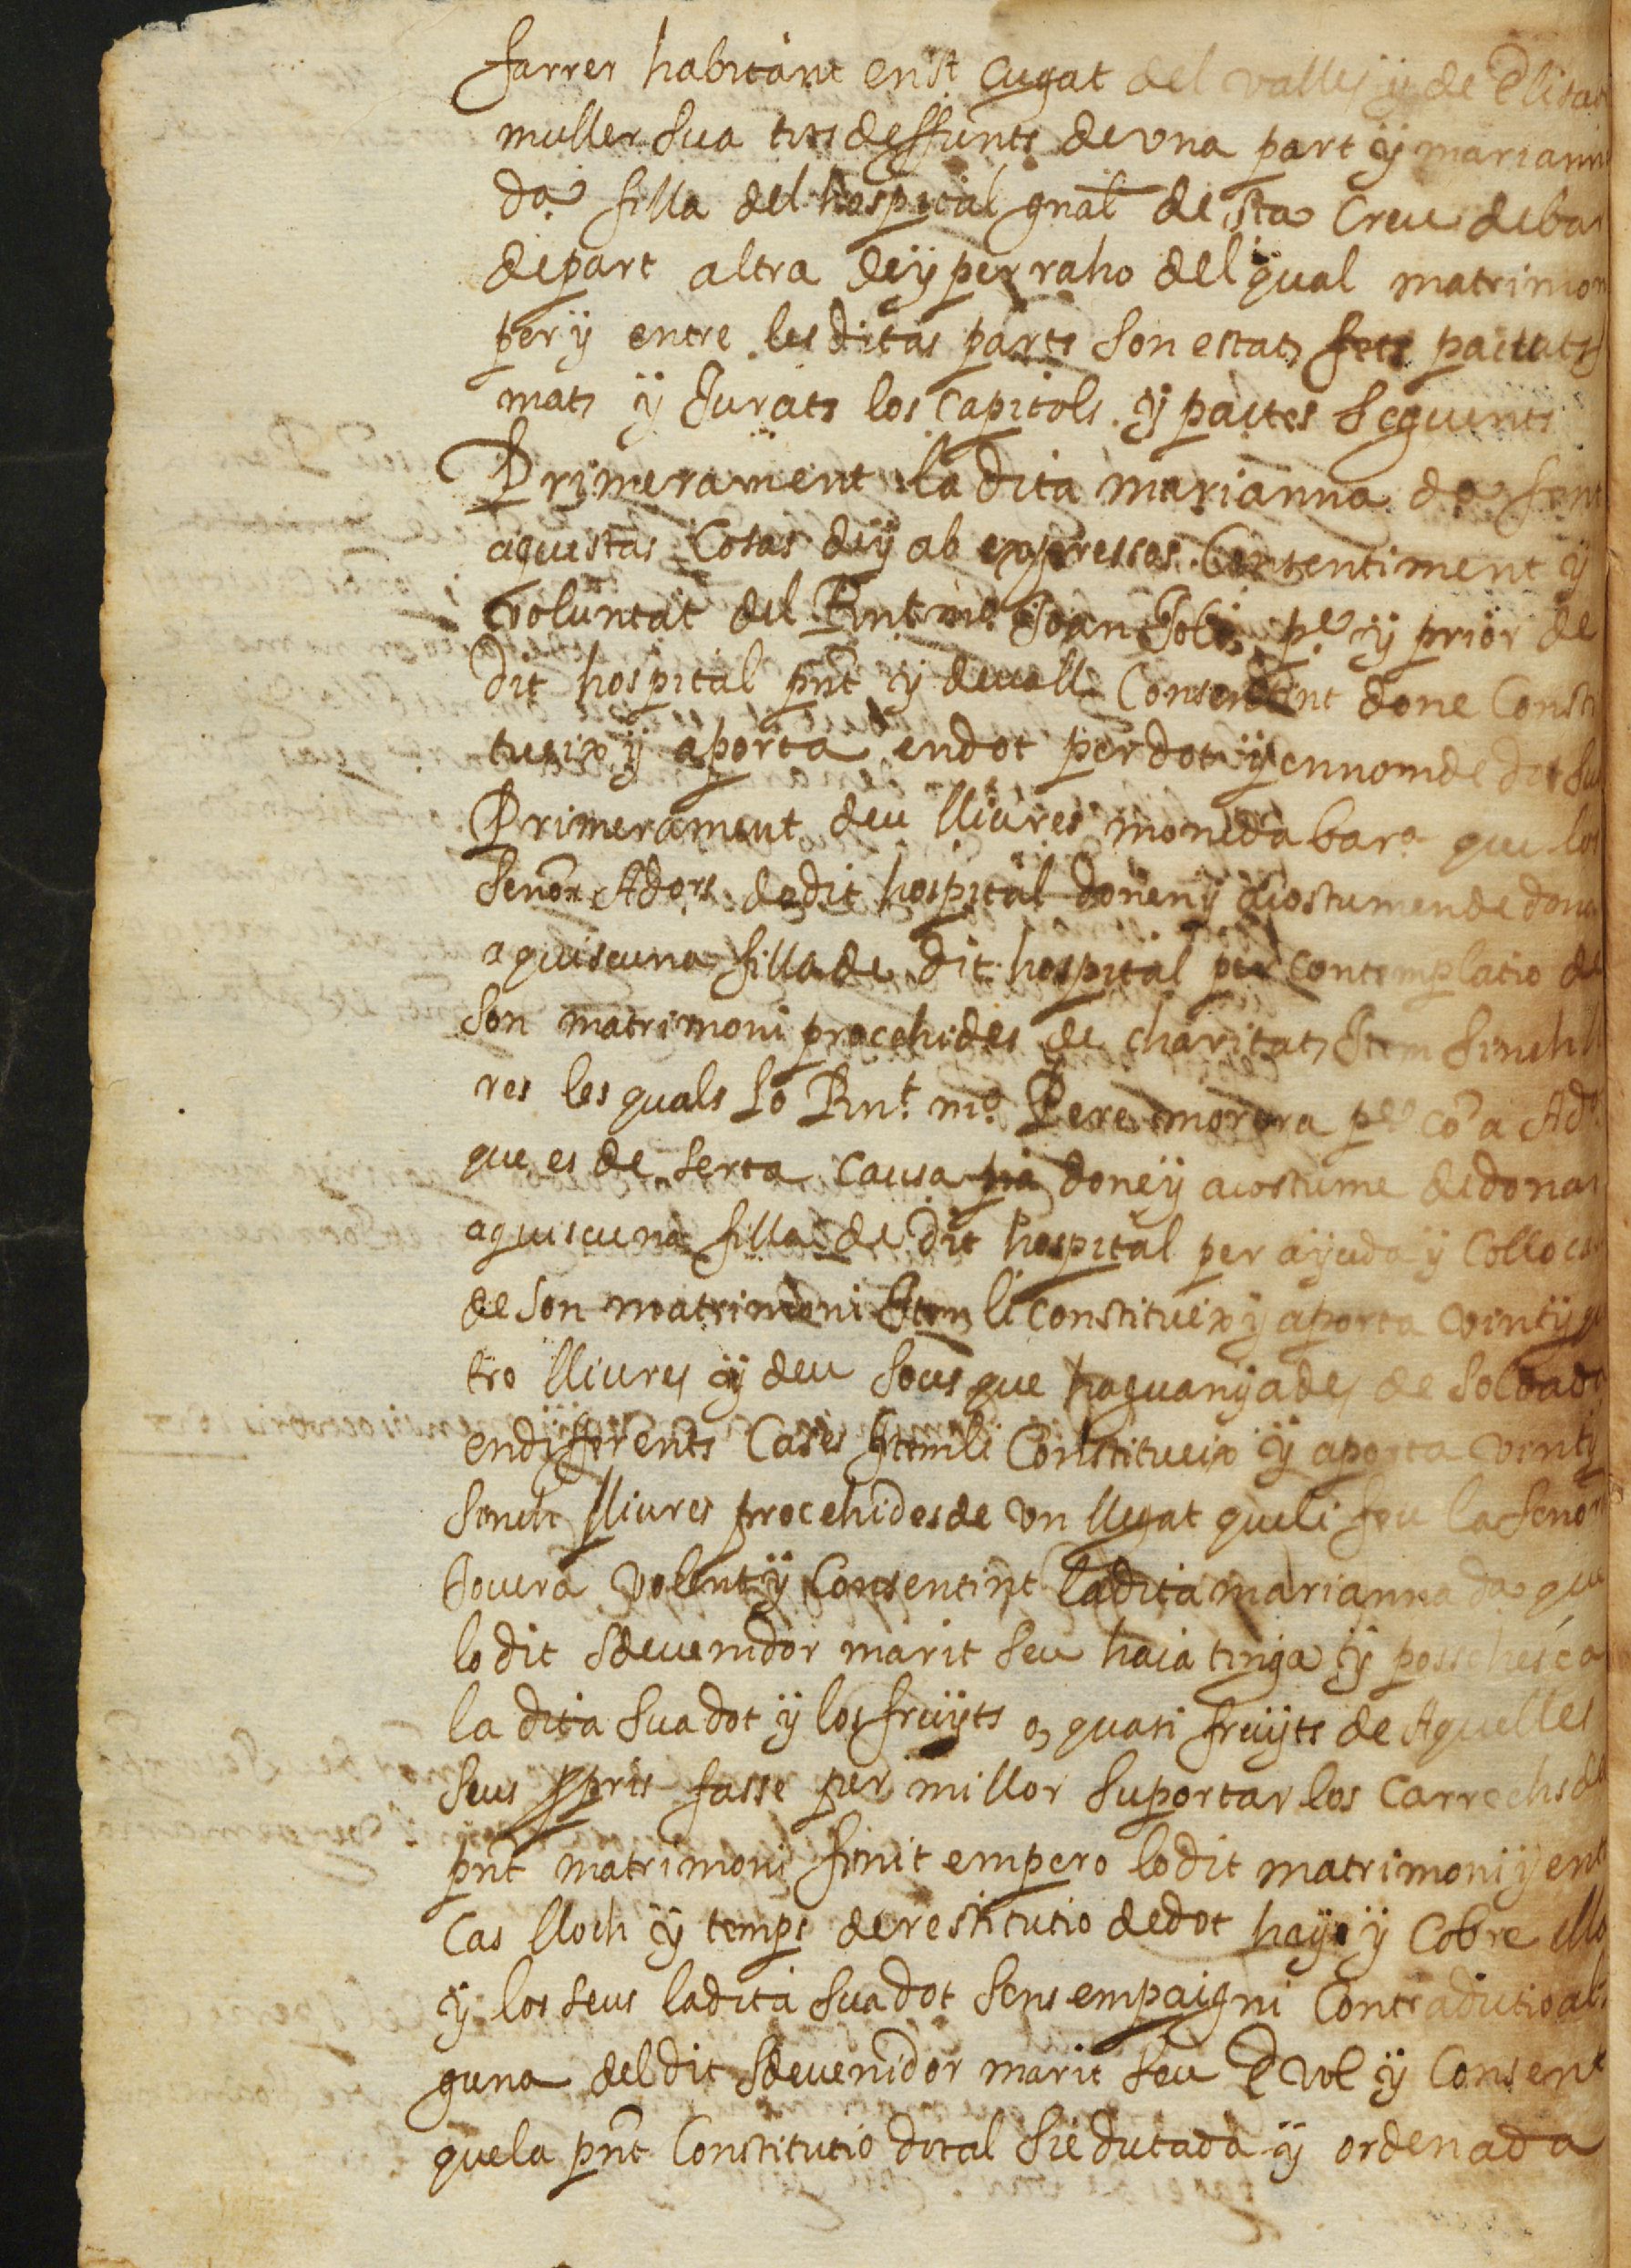 farrer habitant en st. Cugat del valles y de Elisab
muller sua tots deffunts de una part y mariann
da. filla del hospital gnal de sta Creu de bar
de part altra de y per raho del qual matrimon
per y entre les ditas parts son estats fets pactats
mats y Jurats los Capitols y pactes seguents
Primerament la dita marianna da. fent
aquestas Cosas de y ab expresses Consentiment y
voluntat del Rnt. mo. Joan Soli pe. y prior de
dit hospital pnt y devall Consentint done Consti
tueix y aporta en dot per dot y en nom de dot sua
Primerament deu lliures moneda bara. que los
senors Adors. de dit hospital donen y acostumen de dona
a quiscuna filla de dit hospital per contemplatio de
son matrimoni procehides de charitats Item sinch lli
res les quals lo Rnt. mo. Pere morera pe. co a Ador.
que es de serta Causa pia done y acostume de donar
a quiscuna filla de dit hospital per ajuda y Colloca
de son matrimoni Item li constitueix y aporta vint y qua
tro lliures y deu sous que ha guanyades de soldada
en differents Cases Item li Constitueix y aporta vint y
sinch lliures procehides de un llegat que li feu la senora
Jovera volent y Consentint la dita marianna da. que
lo dit sdevenidor marit seu haia tinga y possehesca
la dita sua dot y los fruyts o, quasi fruyts de Aquelles
seus ppris fasse per millor suportar los Carrechs de
pnt matrimoni finit empero lo dit matrimoni y en t
Cas lloch y temps de restitutio de dot haye y Cobre ella
y los seus la dita sua dot sens empaig ni Contradictio al
guna del dit sdevenidor marit seu E vol y Consent
que la pnt Constitutio dotal sie dictada y ordenada